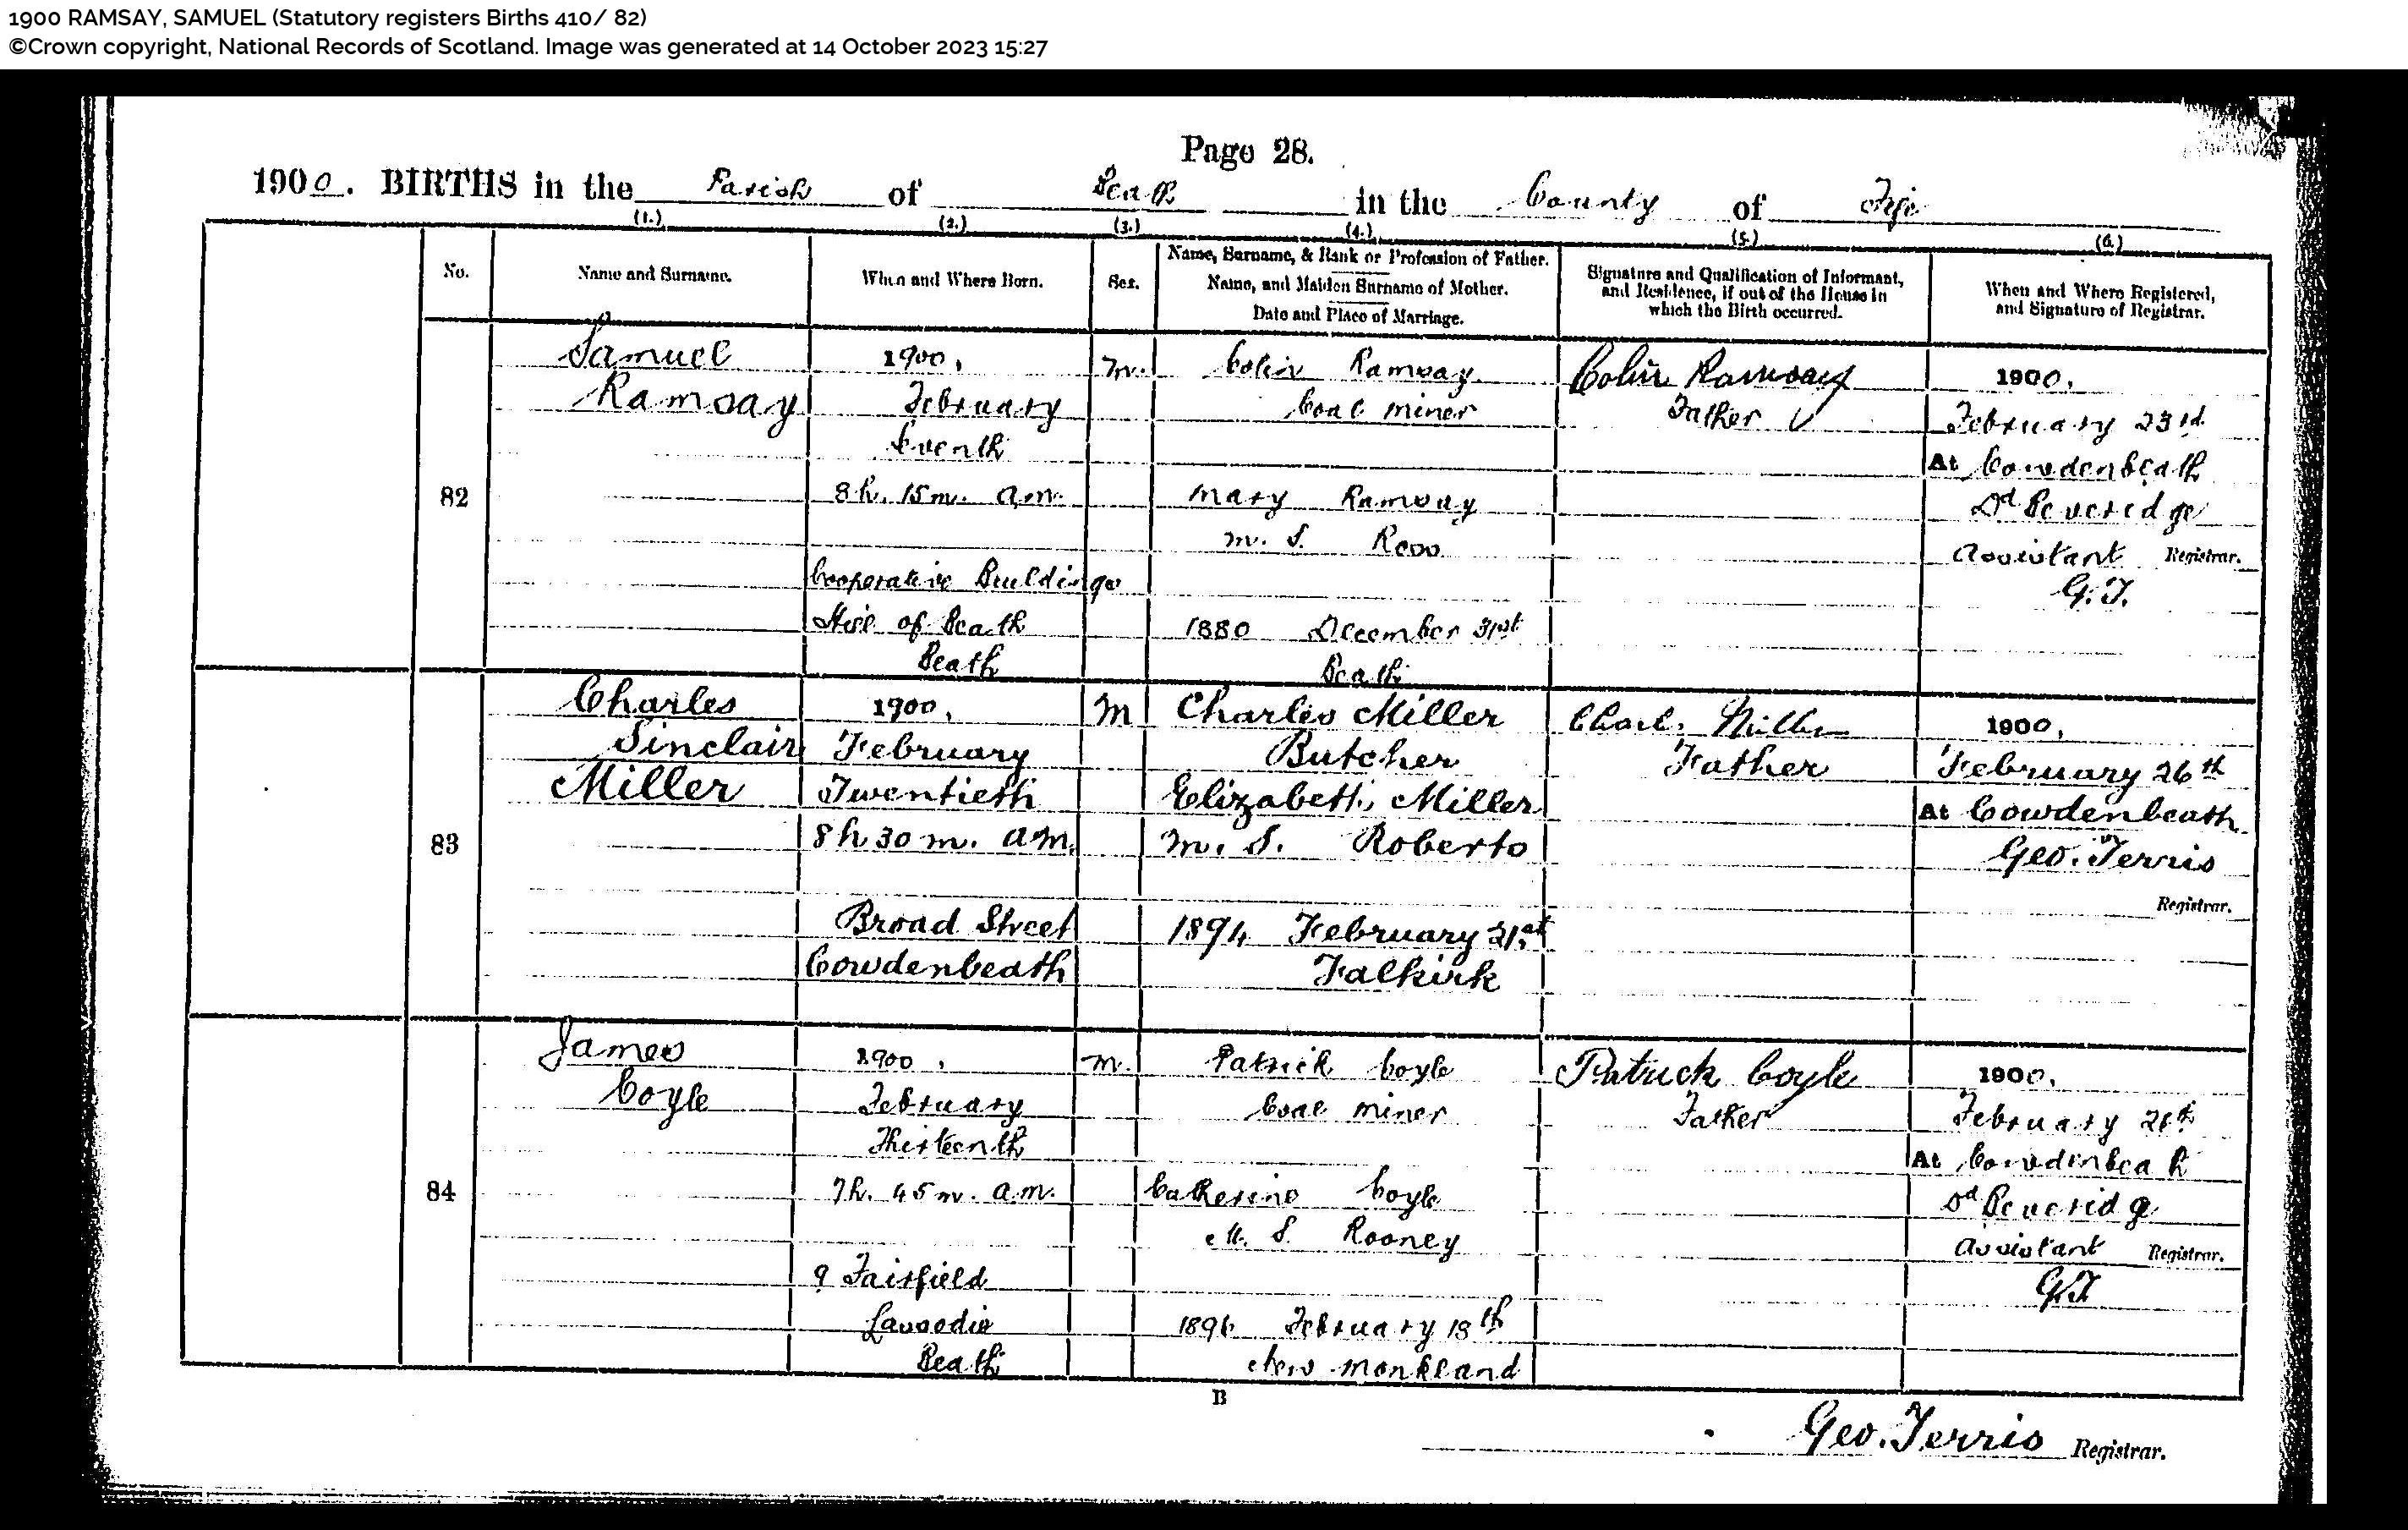 1900 RAMSAY, SAMUEL (Statutory registers Births 410/ 82)
©Crown copyright, National Records of Scotland. Image was generated at 14 October 2023 15:27
Page 28.
1900. BIRTHS in the Parish of Beath in the County of Fife
(1.) (2.) (3.) (4.) (5.) (6.)
No.
Name and Surname.
When and Where Born.
Sex.
Name, Surname, & Rank or Profession of Father.
Name, and Maiden Surname of Mother.
Date and Place of Marriage.
Signature and Qualification of Informant,
and Residence, if out of the House in
which the Birth occurred.
When and Where Registered,
and Signature of Registrar.
82
Samuel
Ramsay
1900,
February
Seventh
8h. 15m. a.m.
Cooperative Buildings
Hill of Beath
Beath
m.
Colin Ramsay
Coal miner
Mary Ramsay
m. S. Ross
1880 December 31st
Beath
Colin Ramsay
Father
1900,
February 23rd
At Cowdenbeath
Dd Beveridge
Assistant Registrar.
G.T.
83
Charles
Sinclair
Miller
1900,
February
Twentieth
8h 30m. am.
Broad Street
Cowdenbeath
M
Charles Miller
Butcher
Elizabeth Miller
m. S. Roberts
1894 February 21st
Falkirk
Charles Miller
Father
1900,
February 26th
At Cowdenbeath
Geo. Terris
Registrar.
84
James
Coyle
1900,
February
Thirteenth
7h. 45m. a.m.
9 Fairfield
Lassodie
Beath
m.
Patrick Coyle
Coal miner
Catherine Coyle
M. S. Rooney
1896 February 18th
New Monkland
Patrick Coyle
Father
1900,
February 26th
At Cowdenbeath
Dd Beveridge
Assistant Registrar.
G.T
B
Geo. Terris Registrar.